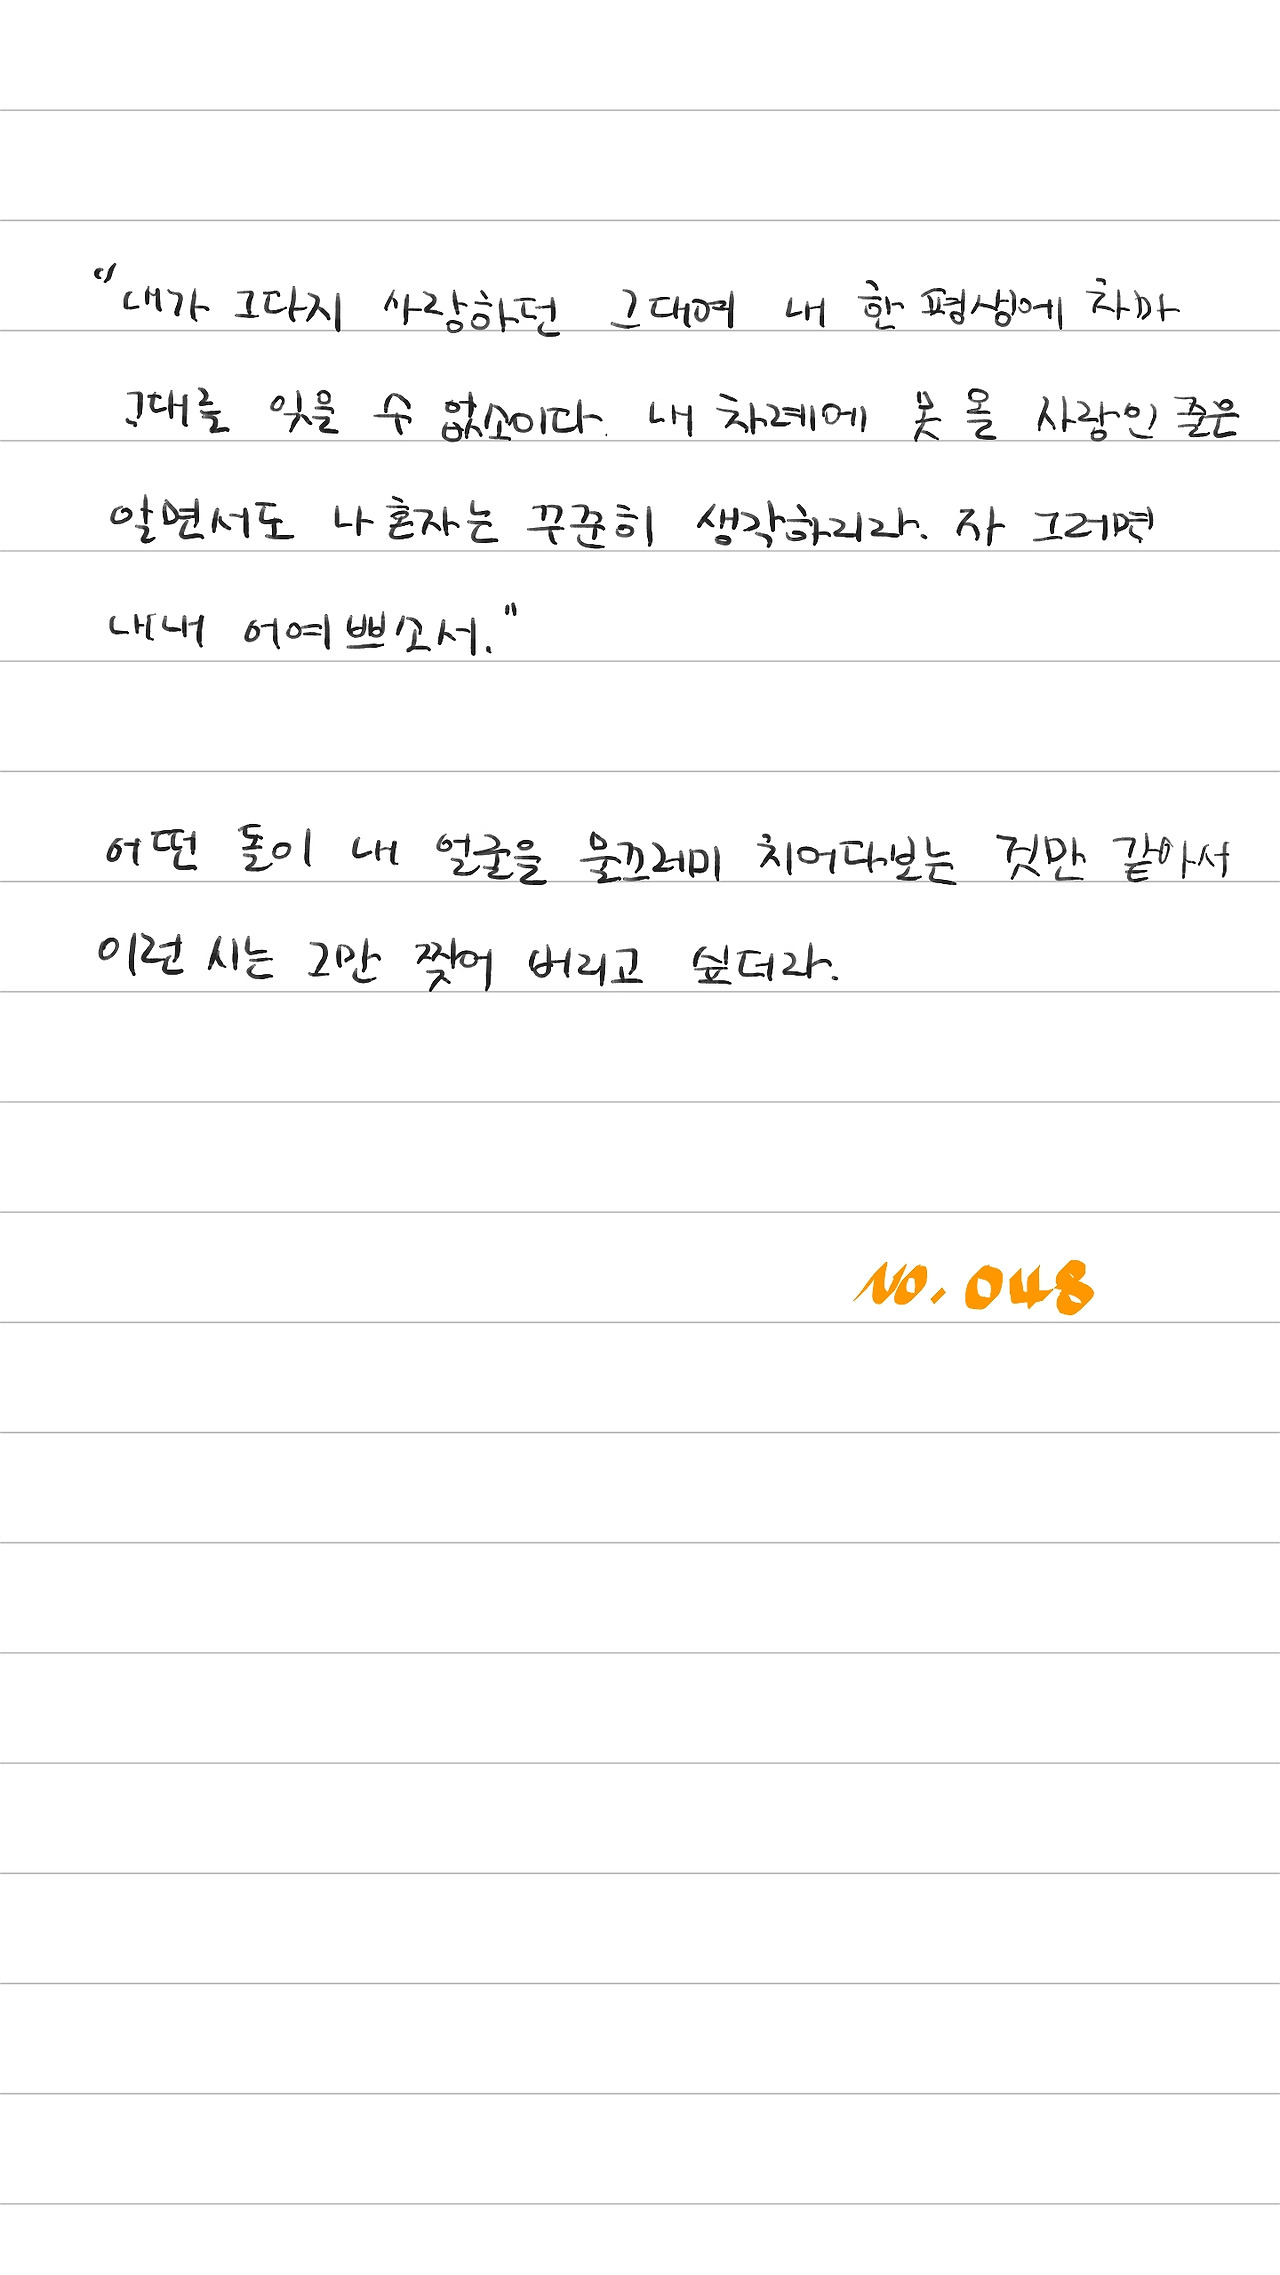 "내가 그다지 사랑하던 그대여 내 한 평생에 차마
그대를 잊을 수 없소이다. 내 차례에 못 올 사랑인 줄은
알면서도 나 혼자는 꾸준히 생각하리라. 자 그러면
내내 어여쁘소서."
어떤 돌이 내 얼굴을 물끄러미 치어다보는 것만 같아서
이런 시는 그만 찢어 버리고 싶더라.
NO. 048